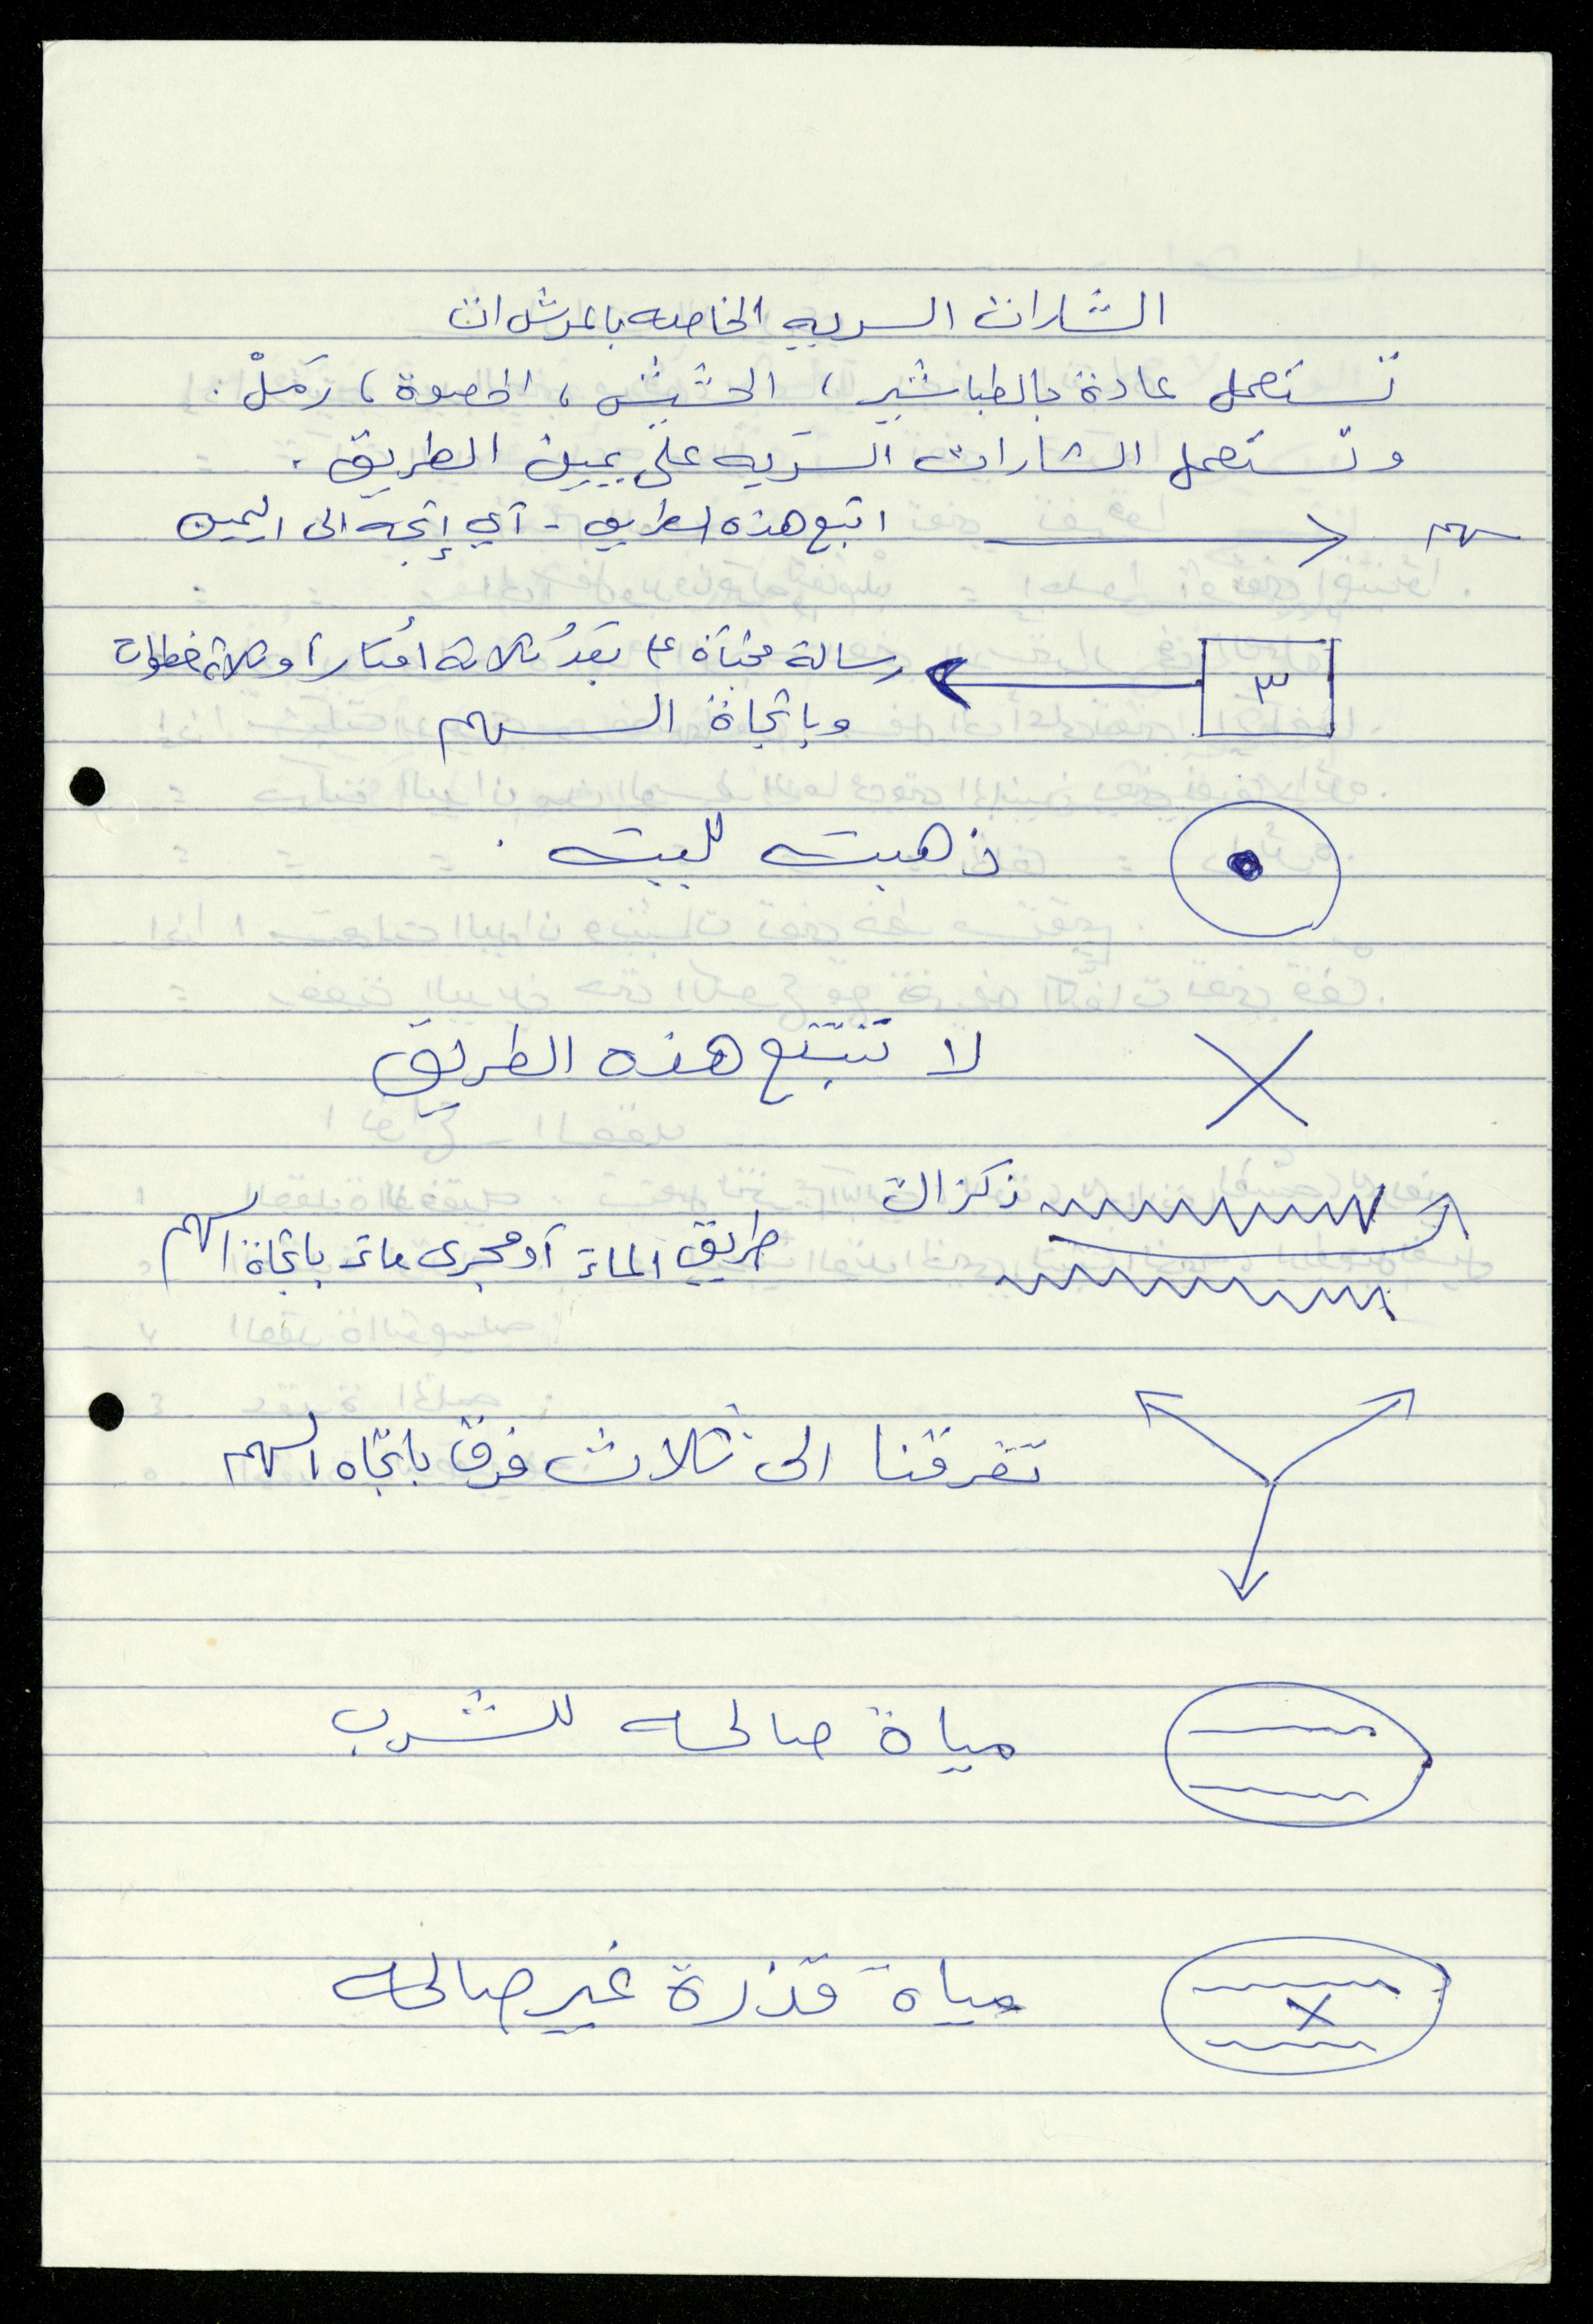 الشارات السريه الخاصه بالمرشدات
تستعمل عادة بالطباشير، الحشيش، الحصوة، رَملْ.
وتستعمل الشارات السريه على يمين الطريق.
سهم اتبع هذه الطريق - آي إتجه الى اليمين
٣ رسالة مخبآة على بَعدُ ثلاثة امتار آو ثلاثة خطوات
وباتجاة السهم
ذهبت للبيت.
لا تتبع هذه الطريق
زكزاك
طريق الماء آو مجرى ماء باتجاة السهم
تفرقنا الى ثلاث فرق باتجاه السهم
مياة صالحه للشرب
مياه قذرة غير صالحه